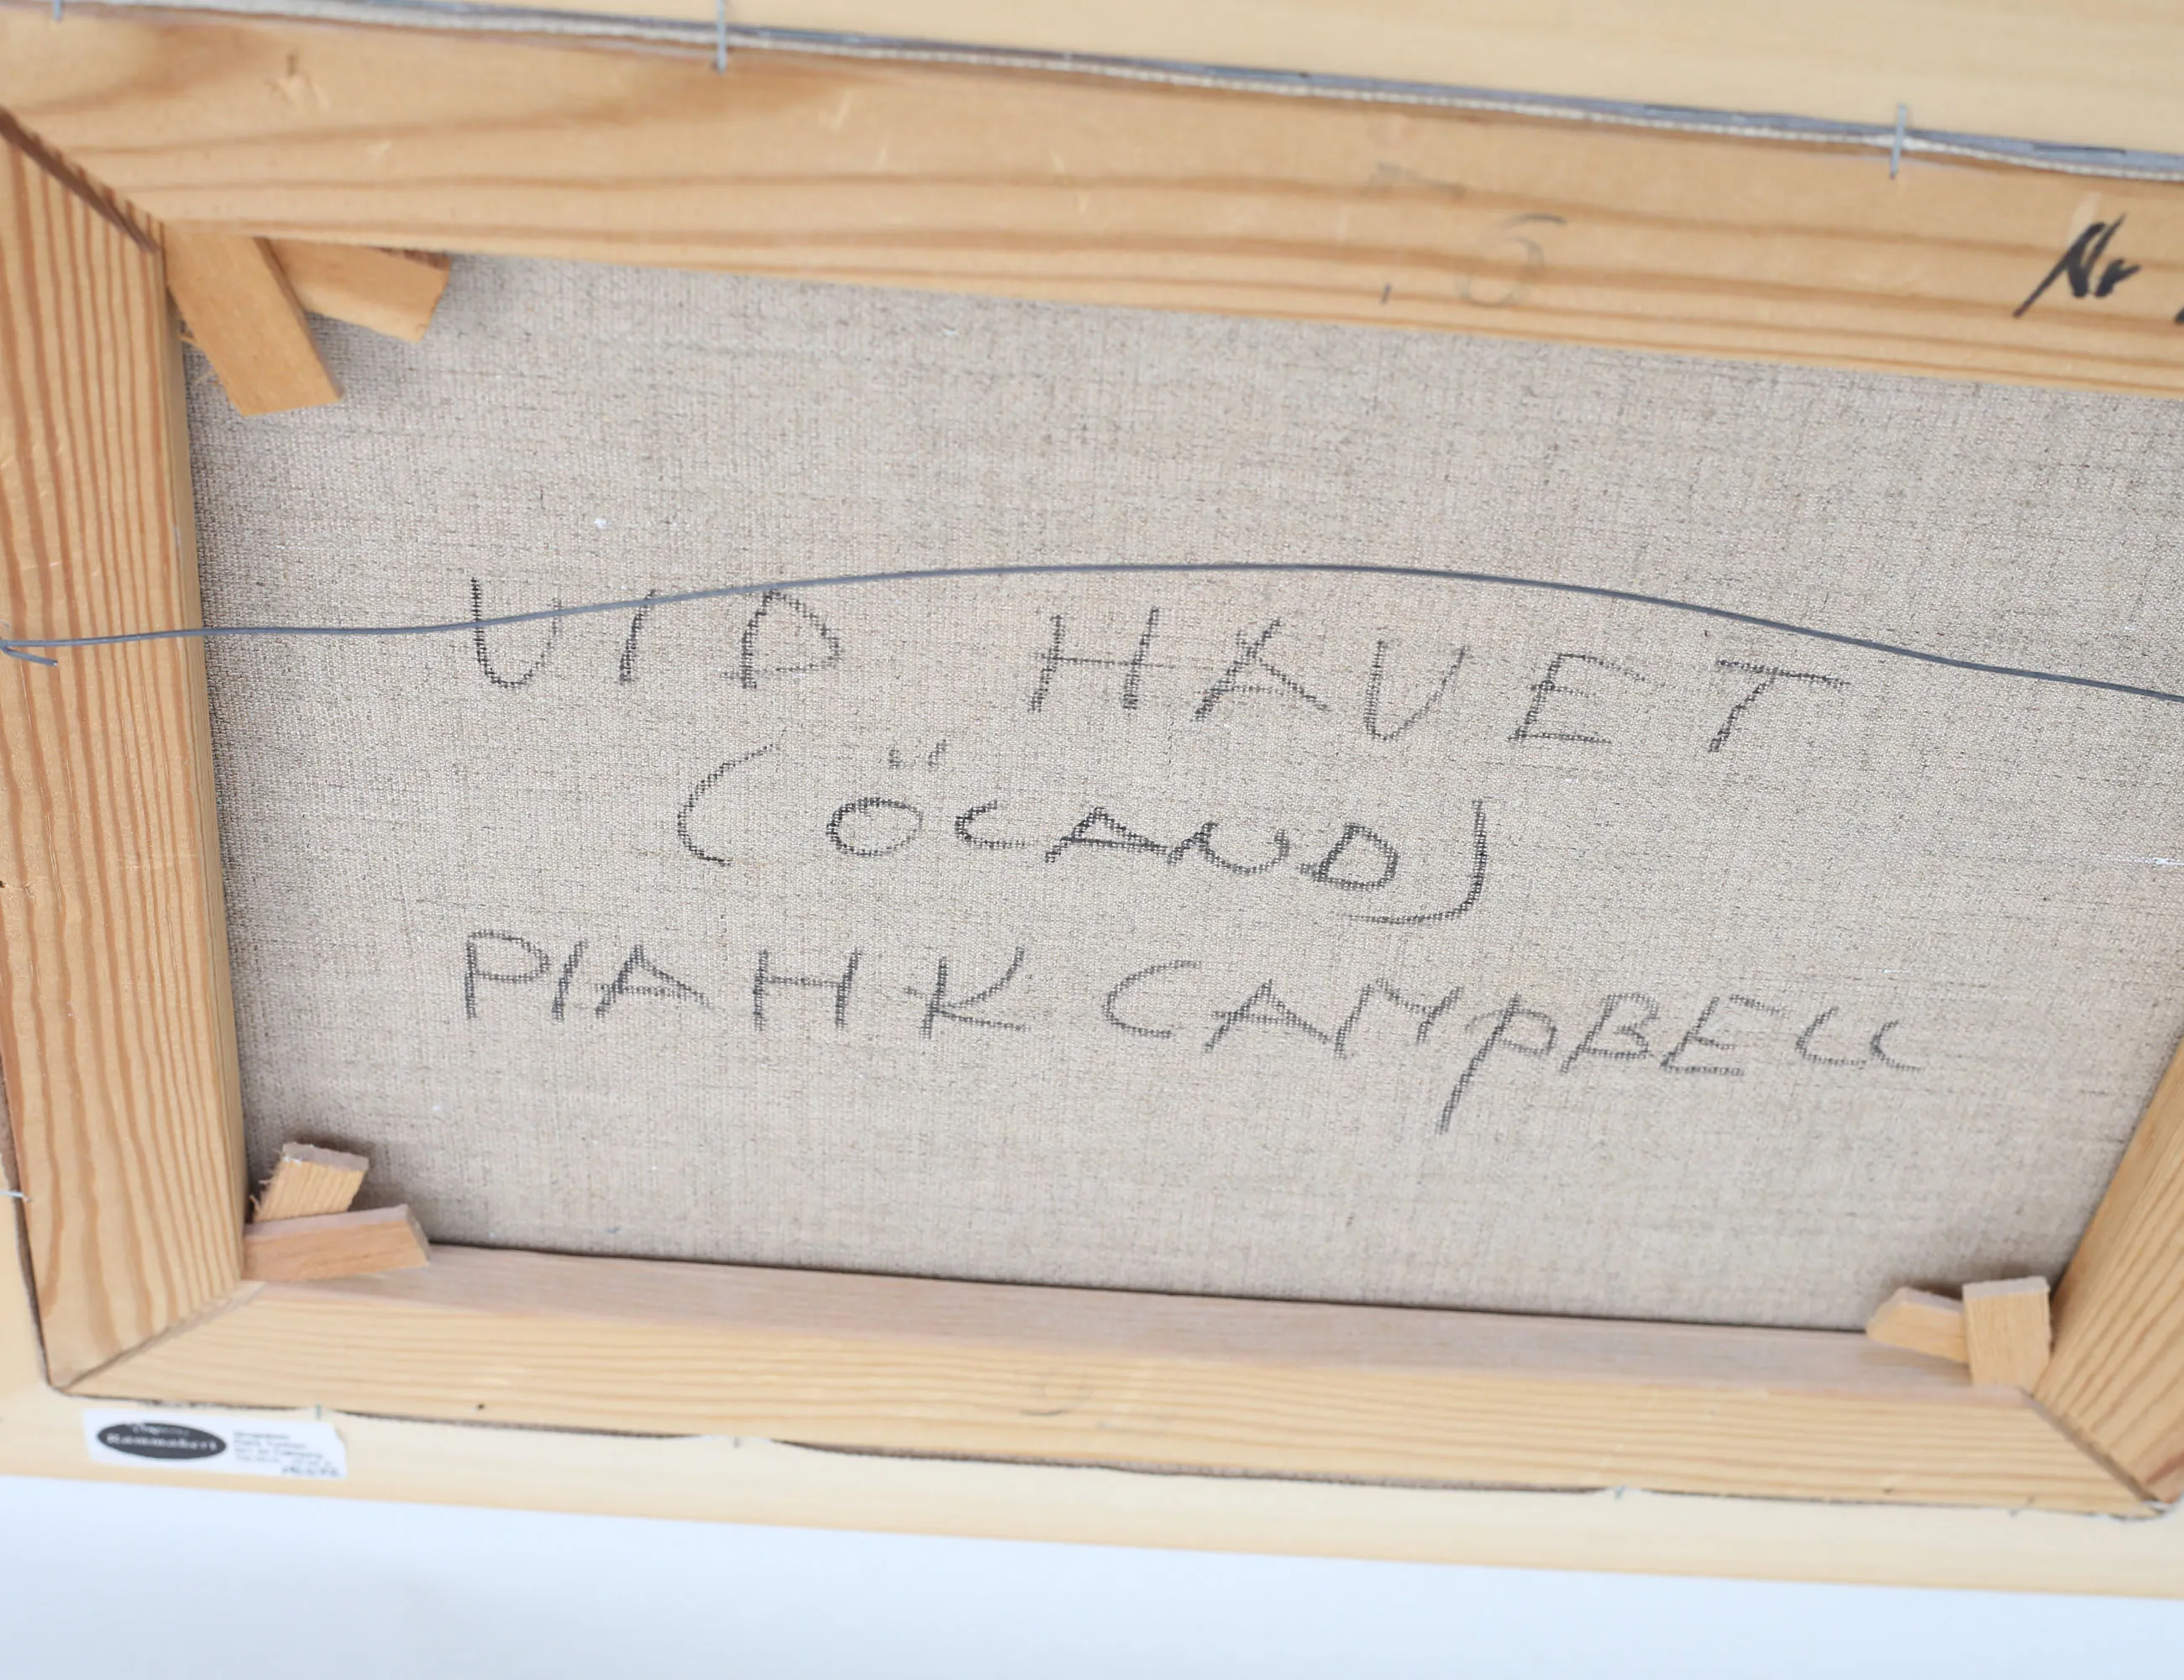 Nr
VID HAVET
(ÖLAND)
PIA H K CAMPBELL
Rammakeri